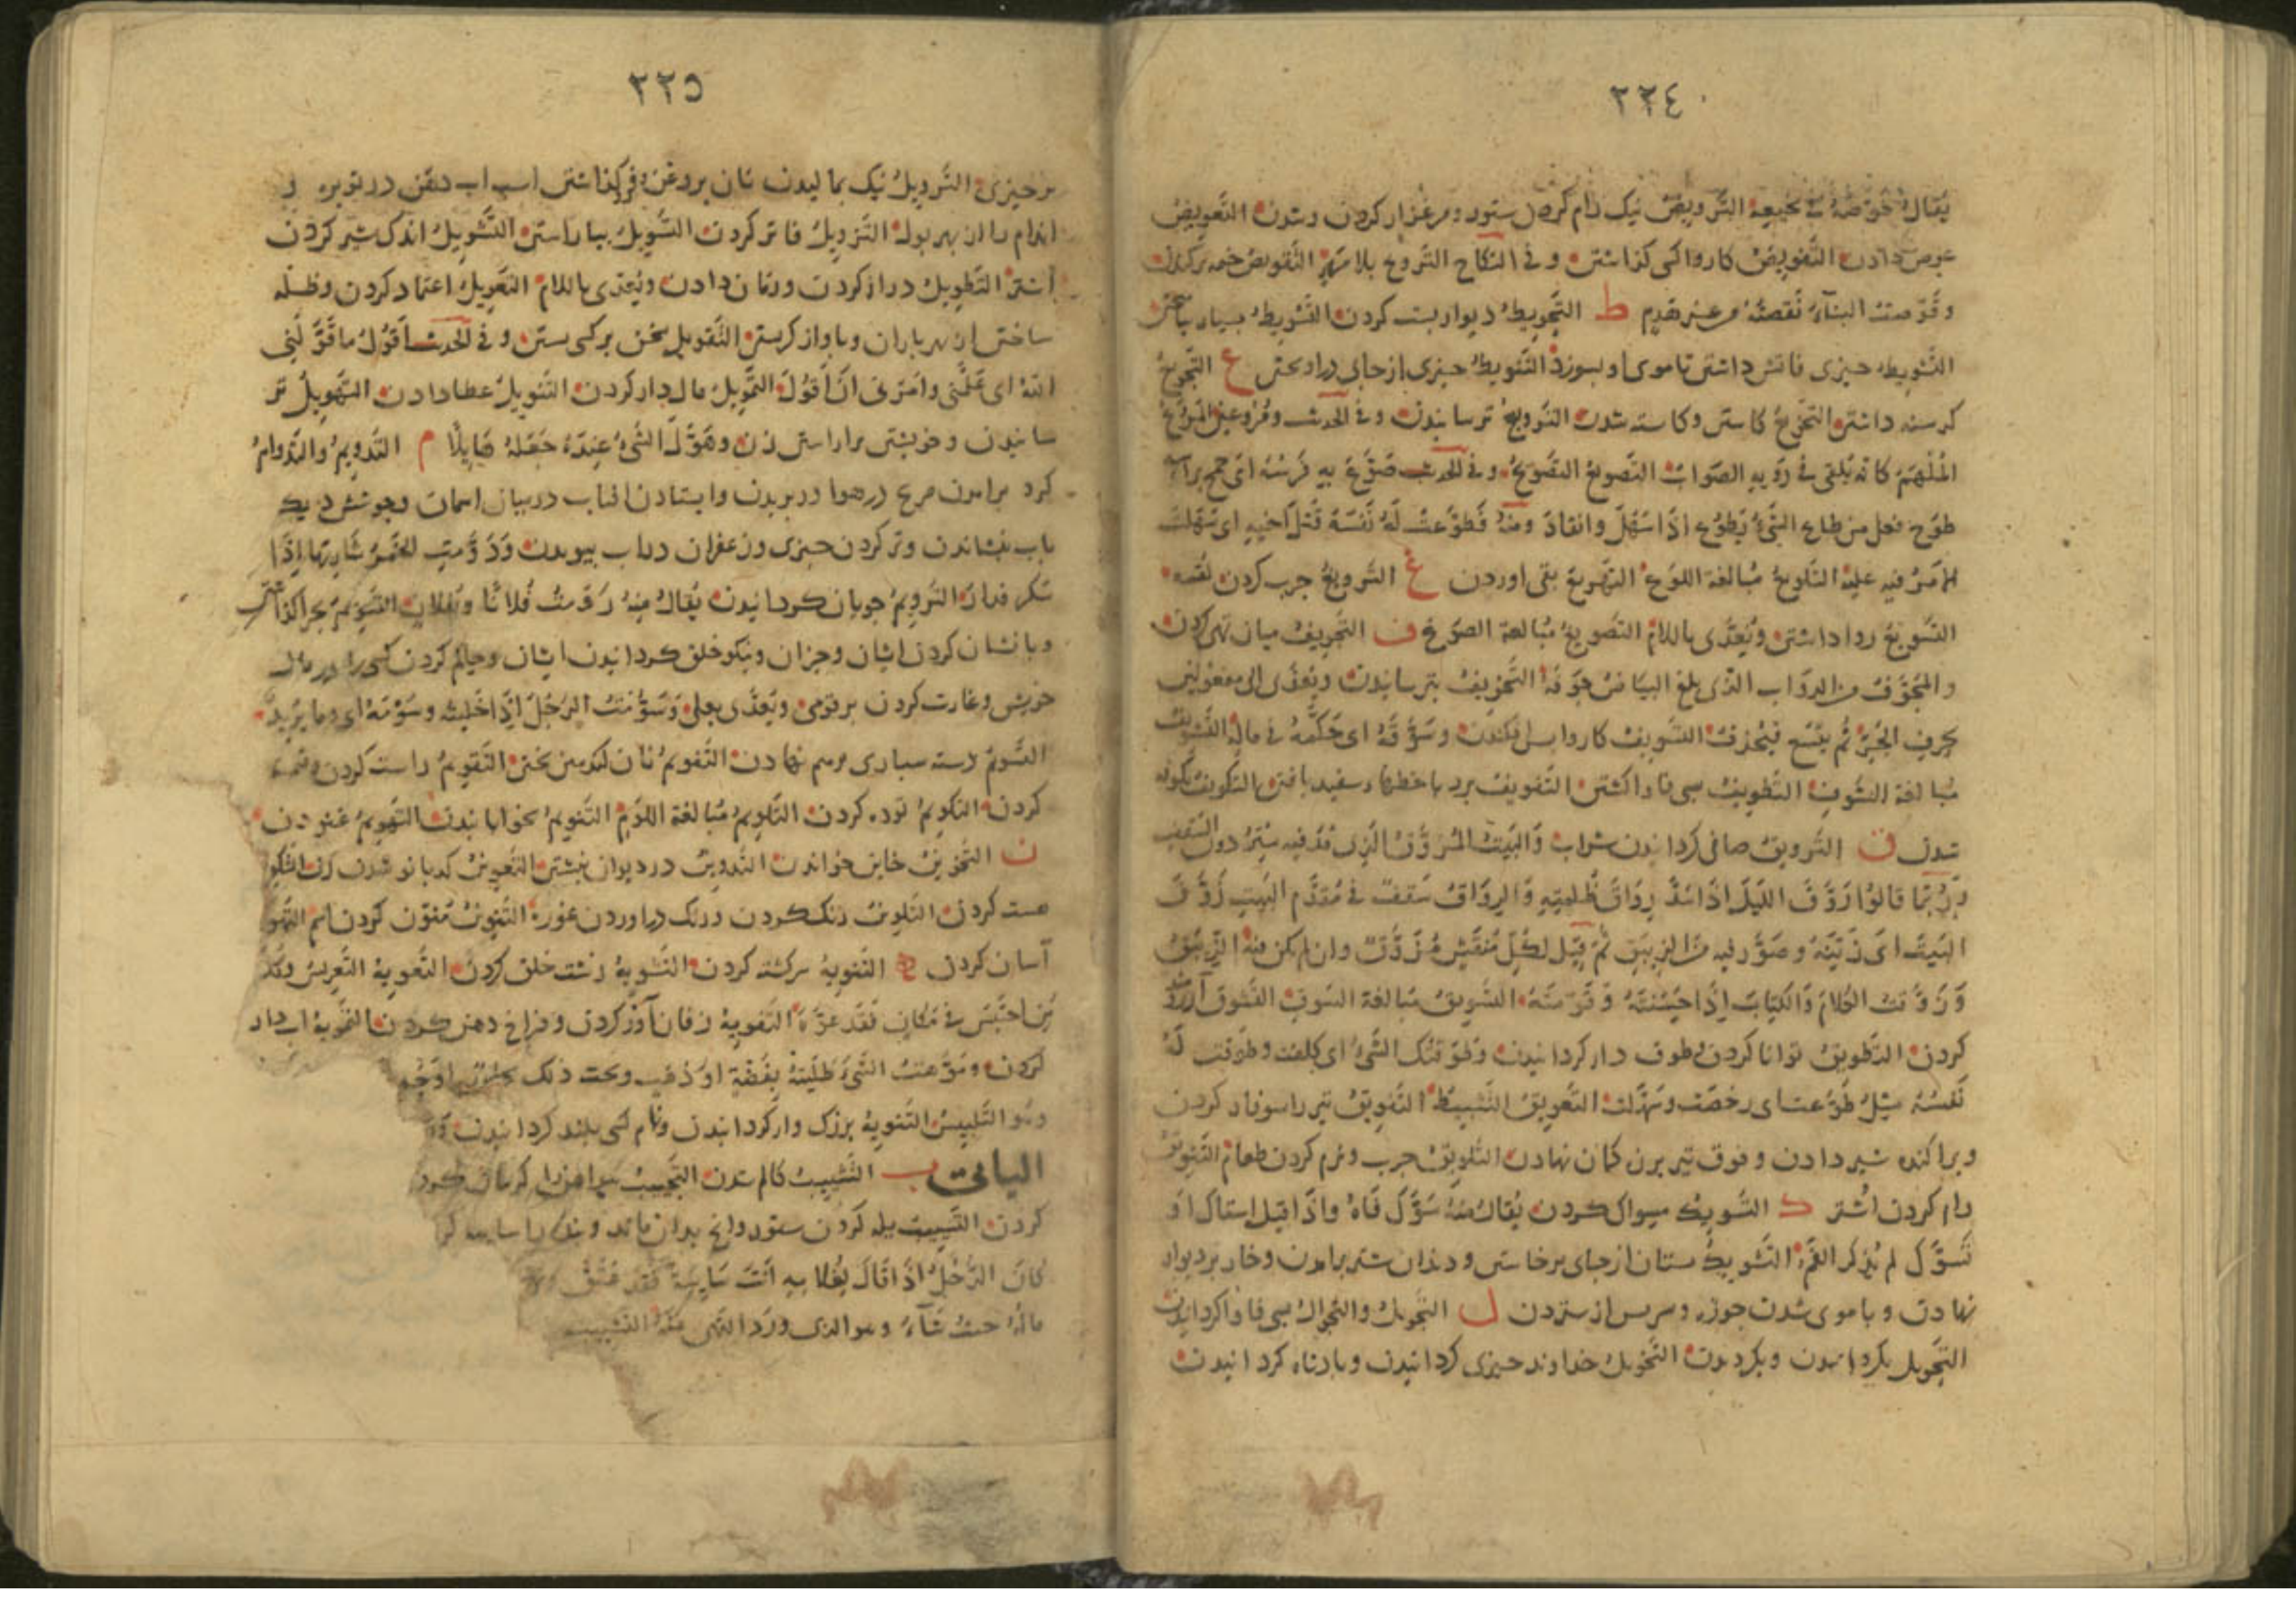 ٢٢٤
يقال خوّضه في نجيعه التّرويض نيك رام كردن ستور ومرغزار كردن وشدن التّعويض
عوض دادن التّفويض كار وا كسى كذاشتن وفي النكاح التزويج بلا مهر التّقويض خيمه بركندن
وقوّضت البناء نقضته من غير هدم ط التّحويط ديوار بست كردن التّشويط
التّشويط چيزى فا تش داشتن تا موى او بسوزد التّنويط چيزى از جاى دراويختن ع التّجويع
كرسنه داشتن التخويع كاستن وكاسته شدن التّرويع ترسانيدن وفي الحديث
الملهم كانه يلقى في روعه الصواب التّصويع التّصوّع وفي الحديث صوّع به فرسه اى جمح برأسه
طوّع فعل من طاع الشّيء يطوع اذا سهل وانقاد ومنه فطوّعت له نفسه قتل اخيه اى سهلت
الامر فيه عليه التّلويع مبالغة اللوع التّهويع بقى اوردن غ التّرويغ چرب كردن لقمه
التّسويغ روا داشتن ويعدّى باللام التّصويغ مبالغة الصّوغ ف التّجويف ميان تهى كردن
والمجوّف من الدوابّ الذى بلغ البياض جوفه التّخويف بترسانيدن ويعدّى الى مفعولين
بحرف الجرّ ثم يتّسع فيحذف التّسويف كار وا پس افكندن وسوّفته اى حكّمته في مالى التّشويف
مبالغة الشّوف التّطويف بسى فا واكشتن التّفويف برد با خطها سفيد بافتن التّكويف
شدن ق التّرويق صافى كردانيدن شراب والبيت المروّق الذى قدّ فيه ستر دون السّقف
ربّما قالوا روّق الليل اذا مدّ رواق ظلمته والرواق سقف في مقدّم البيت زوّق
البيت اى زيّنه وصوّر فيه من الزيبق ثم قيل لكلّ منقّش مزوّق وان لم يكن فيه الزيبق
وزوّقت الكلام والكتاب اذا حسّنته وقوّمته التّسويق مبالغة السّوق التّشويق آرزومند
كردن التّطويق توانا كردن وطوق دار كردانيدن وطوّقتك الشّيء اى كلّفتك وطوّقت له
نفسه مثل طوّعت اى رخّصت وسهّلت التّعويق التّثبيط التّفويق تير را سوفار كردن
وپراكنده شير دادن وفوق تير برزه كمان نهادن التّلويق چرب ونرم كردن طعام التّنويق
رام كردن اشتر ك التّسويك مسواك كردن يقال منه سوّك فاه واذا قيل استاك او
تسوّك لم يذكر الفم التّشويك پستان از جاى برخاستن ودندان شتر برامدن وخار بر ديوار
نهادن وبا موى شدن جوزه وسر پس از ستردن ل التّجويل والتّجوال بسى فا وا كردانيدن
التّحويل بكردانيدن وبكرديدن التّخويل خداوند چيزى كردانيدن وپادشاه كردانيدن
٢٢٥
بر چيزى التّرويل نيك بماليدن نان بروغن وفروكذاشتن اسب اب دهن در توبره و
اندام را از بهر بول التّزويل فاتر كردن التّسويل بياراستن التّشويل اندك شير كردن
اشتر التّطويل دراز كردن وزمان دادن ويعدّى باللام التّعويل اعتماد كردن وظلّه
ساختن از بهر باران وباواز كريستن التّقويل سخن بر كسى بستن وفي الحديث اقول ما قوّلني
اللّه اى علّمنى وامرنى ان اقول التّمويل مال دار كردن التّنويل عطا دادن التّهويل تر
سانيدن وخويشتن براراستن زن وهوّل الشّيء عنده جعله هايلا م التّدويم والتّدوام
كرد برامدن مرغ در هوا در پريدن وايستادن افتاب در ميان اسمان وجوشش ديك
باب بنشاندن وتر كردن چيزى وزعفران دراب بسودن ودوّمت الخمر شاربها اذا
سكر فدار التّرويم جويان كردانيدن يقال منه روّمت فلانا وبفلان التّسويم بچرا كذاشتن
وبا نشان كردن اسپان وجزان ونيكو خلق كردانيدن ايشان وحاكم كردن كسى را در مال
خويش وغارت كردن بر قومى ويعدّى بعلى وسوّمت الرجل اذا خلّيته وسوّمته اى وما يريد
التّفويم نان كندمين پختن التّقويم راست كردن وقيمة
كردن التّكويم توده كردن التّلويم مبالغة اللّوم التّنويم بخوابانيدن التّهويم غنودن
ن التّخوين خاين خواندن التّدوين در ديوان نبشتن التّعوين كدبانو شدن زن التّكوين
هست كردن التّلوين رنك كردن ورنك دراوردن غوره التّنوين منوّن كردن اسم التّهوين
آسان كردن ه التّتويه سركشته كردن التّشويه زشت خلق كردن التّعويه التّعريس وكلّ
من احتبس في مكان فقد عوّه التّفويه زفان آور كردن وفراخ دهن كردن التّمويه اب دار
كردن وموّهت الشّيء طليته بفضّة او ذهب وتحت ذلك
وهو التّلبيس التّنويه بزرك وار كردانيدن ونام كسى بلند كردانيدن
اليائى ب التّثييب كالم شدن التّجييب
كردن التّسييب يله كردن ستور وانچ بدان ماند وبنده را سايبه كر
كان الرّجل اذا قال لغلامه انت سايبة فقد عتق
ماله حيث شاء وهو الذى ورد النّهى عنه التّشييب